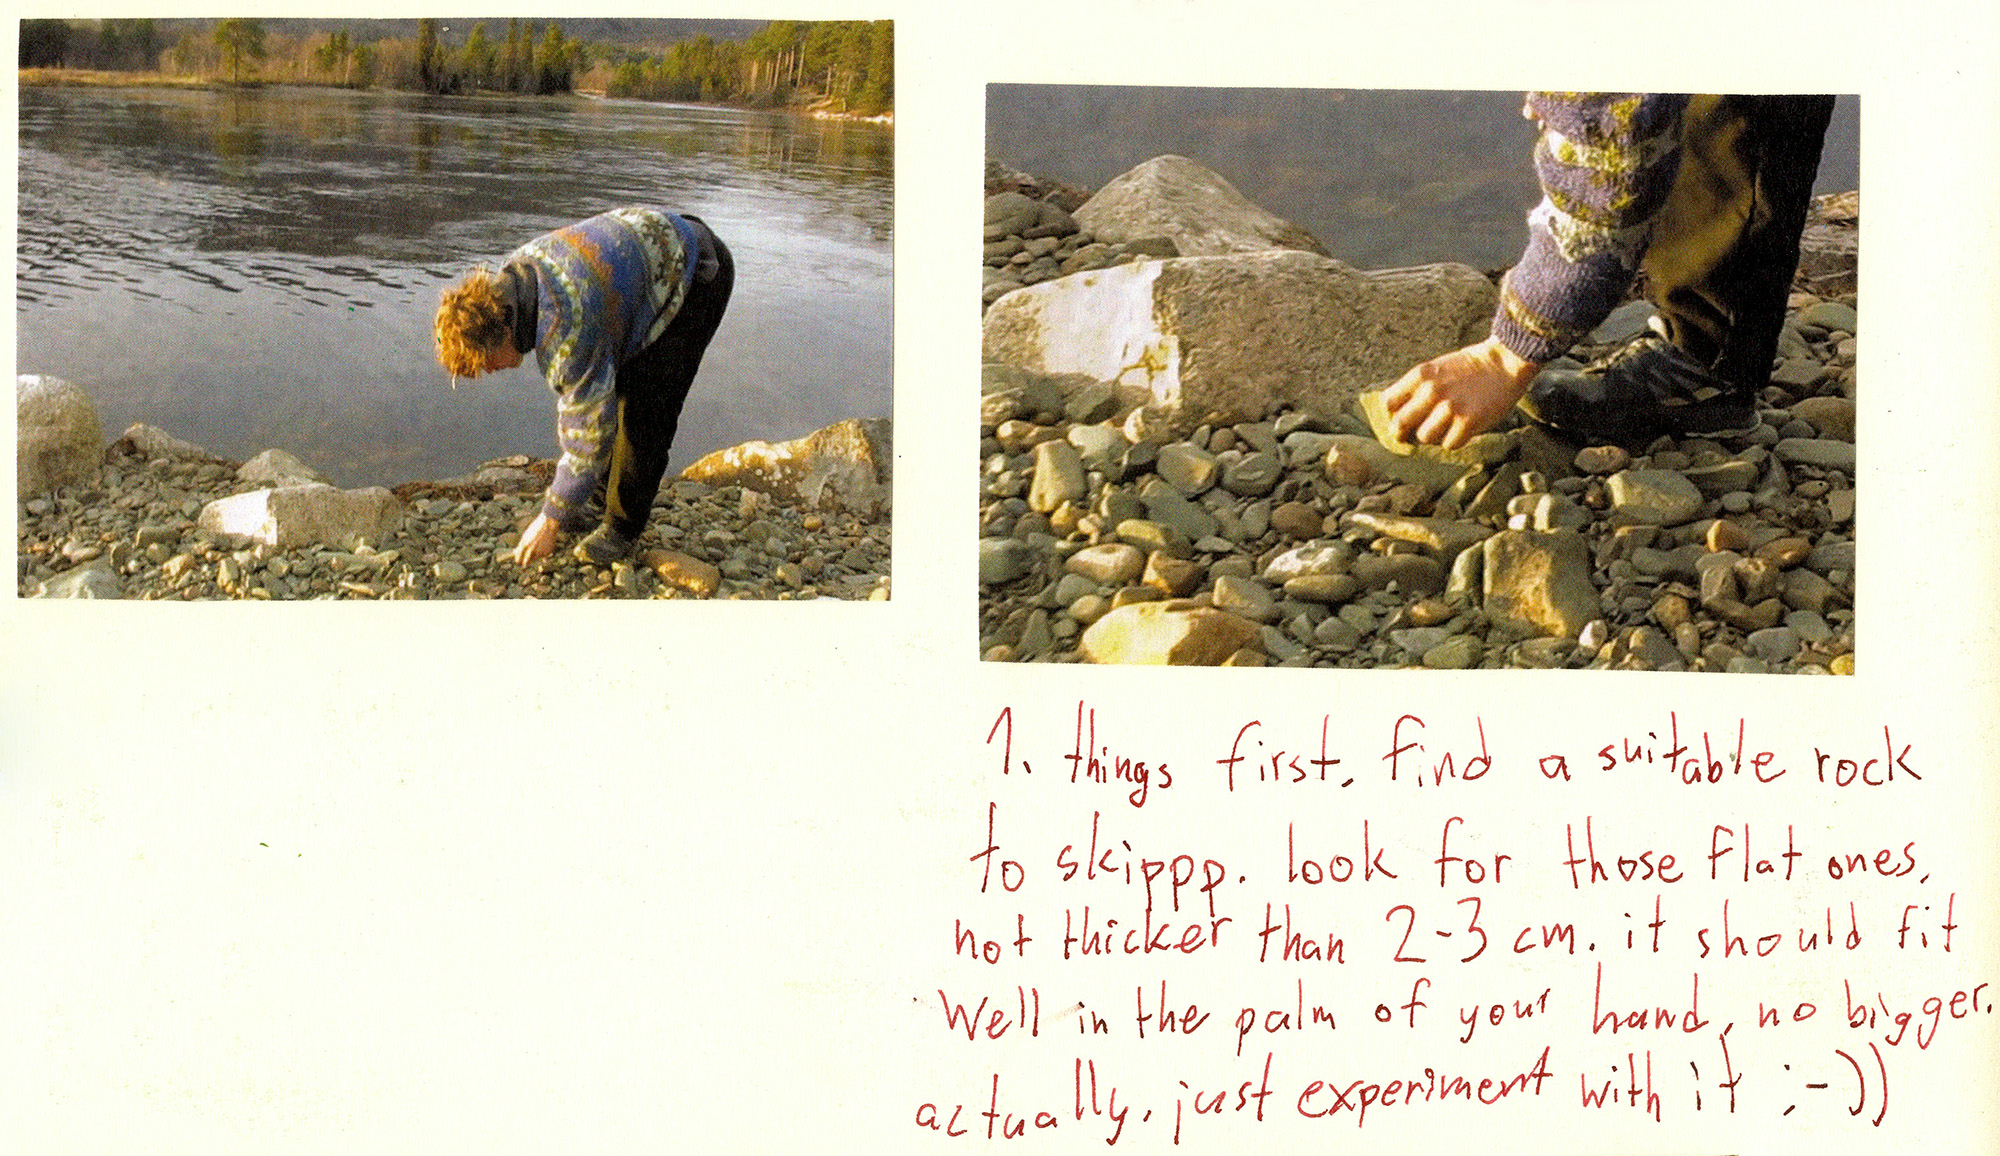 1. things first, find a suitable rock
to skippp. look for those flat ones,
not thicker than 2-3 cm. it should fit
Well in the palm of your hand, no bigger.
actually, just experiment with it ;-))